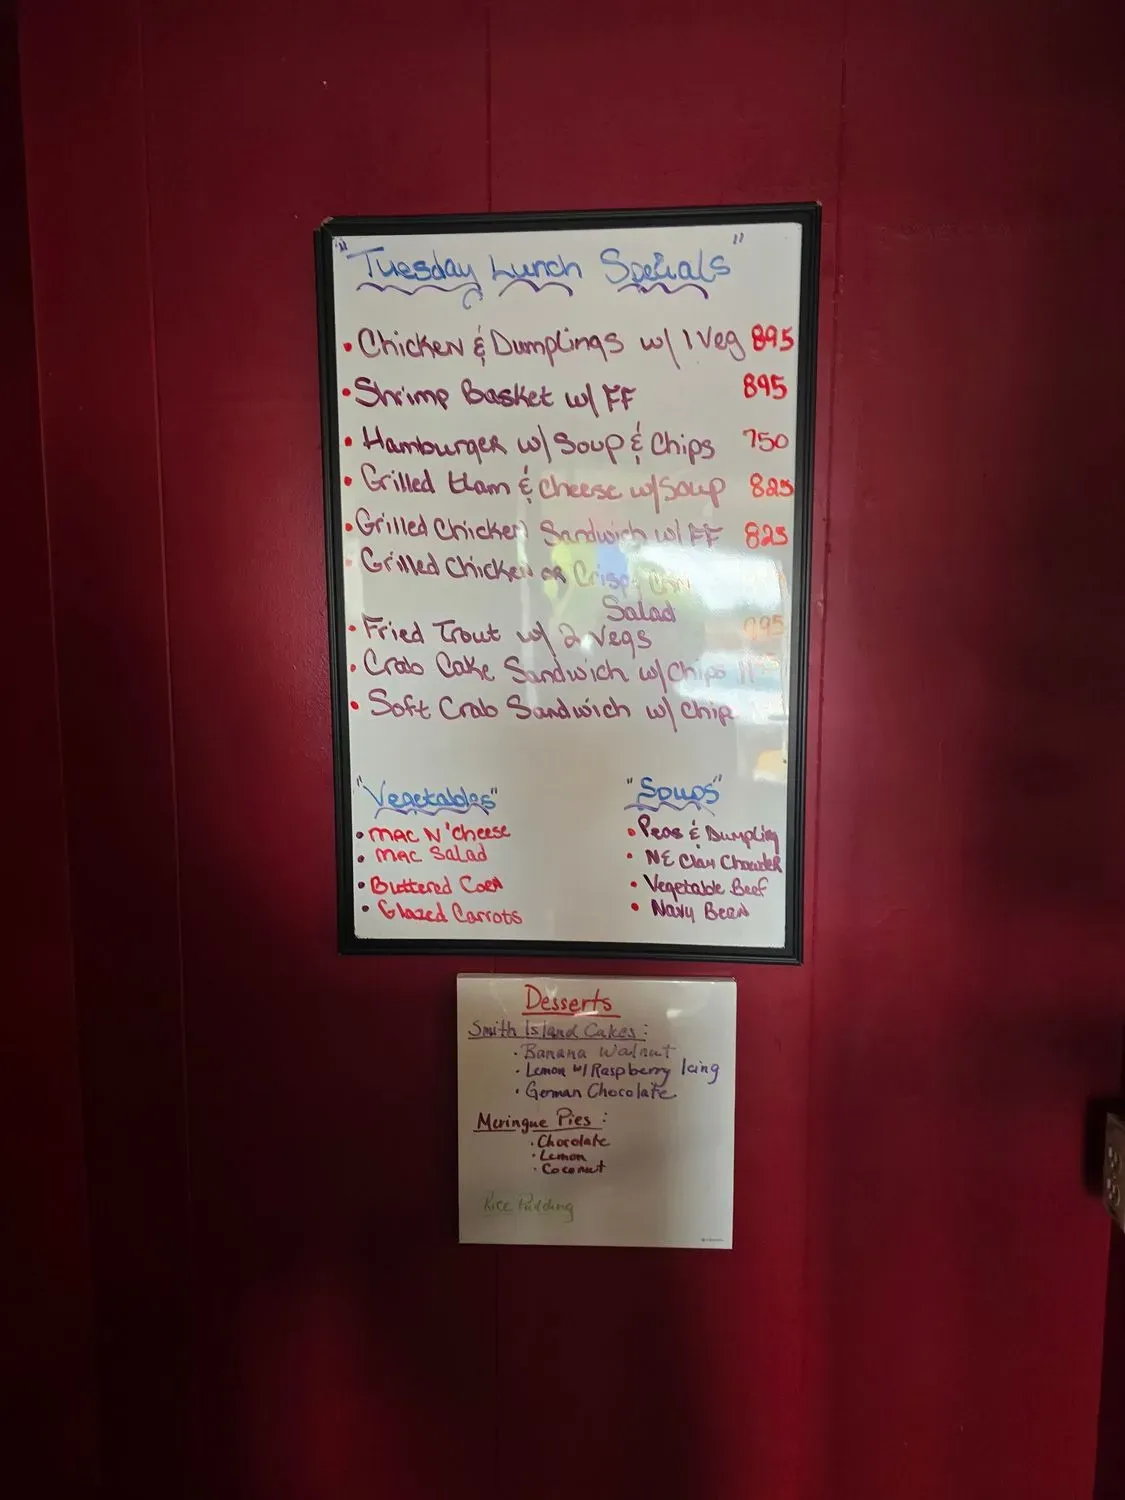 "Tuesday Lunch Specials"
• Chicken & Dumplings w/ 1 Veg 895
• Shrimp Basket w/ FF 895
• Hamburger w/ Soup & Chips 750
• Grilled Ham & Cheese w/ Soup 825
• Grilled Chicken Sandwich w/ FF 825
• Grilled Chicken or Crispy
Salad
• Fried Trout w/ 2 Vegs 995
• Crab Cake Sandwich w/ Chips
• Soft Crab Sandwich w/ Chip
"Vegetables"
• Mac N' Cheese
• Mac Salad
• Buttered Corn
• Glazed Carrots
"Soups"
• Peas & Dumpling
• NE Clam Chowder
• Vegetable Beef
• Navy Bean
Desserts
Smith Island Cakes:
• Banana Walnut
• Lemon w/ Raspberry Icing
• German Chocolate
Meringue Pies:
• Chocolate
• Lemon
• Coconut
Rice Pudding